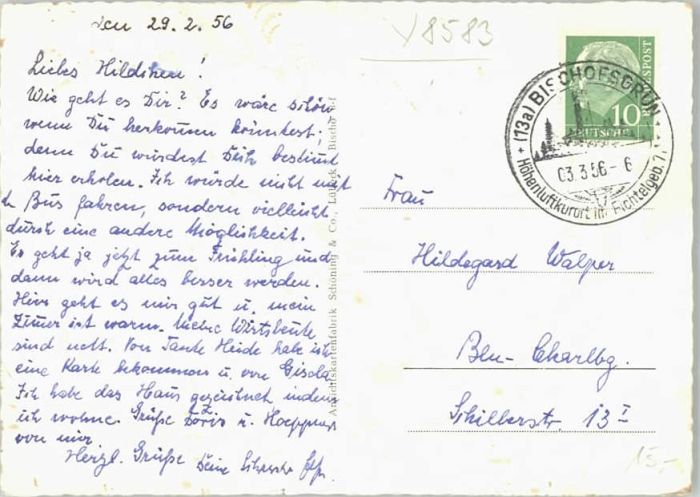 den 29.2.56
Liebes Hildchen!
Wie geht es Dir? Es wäre schön
wenn Du herkommen könntest;
denn Du würdest Dich bestimmt
hier erholen. Ich würde nicht mit
Bus fahren, sondern vielleicht
durch eine andere Möglichkeit.
Es geht ja jetzt zum Frühling und
dann wird alles besser werden.
Hier geht es mir gut u. mein
Zimmer ist warm. Meine Wirtsleute
sind nett. Von Tante Heide habe ich
eine Karte bekommen u. von Gisela
Ich habe das Haus gezeichnet indem
ich wohne. Grüße Doris u.
von mir
Herzl. Grüße Deine
Ansichtskartenfabrik Schöning & Co., Lübeck
Y8583
(13a) BISCHOFSGRÜN
03.3.56-6
Höhenluftkurort im Fichtelgeb.
10
DEUTSCHE
BUNDESPOST
Frau
Hildegard Walper
Bln-Charlbg.
Schillerstr 13 I
15,-